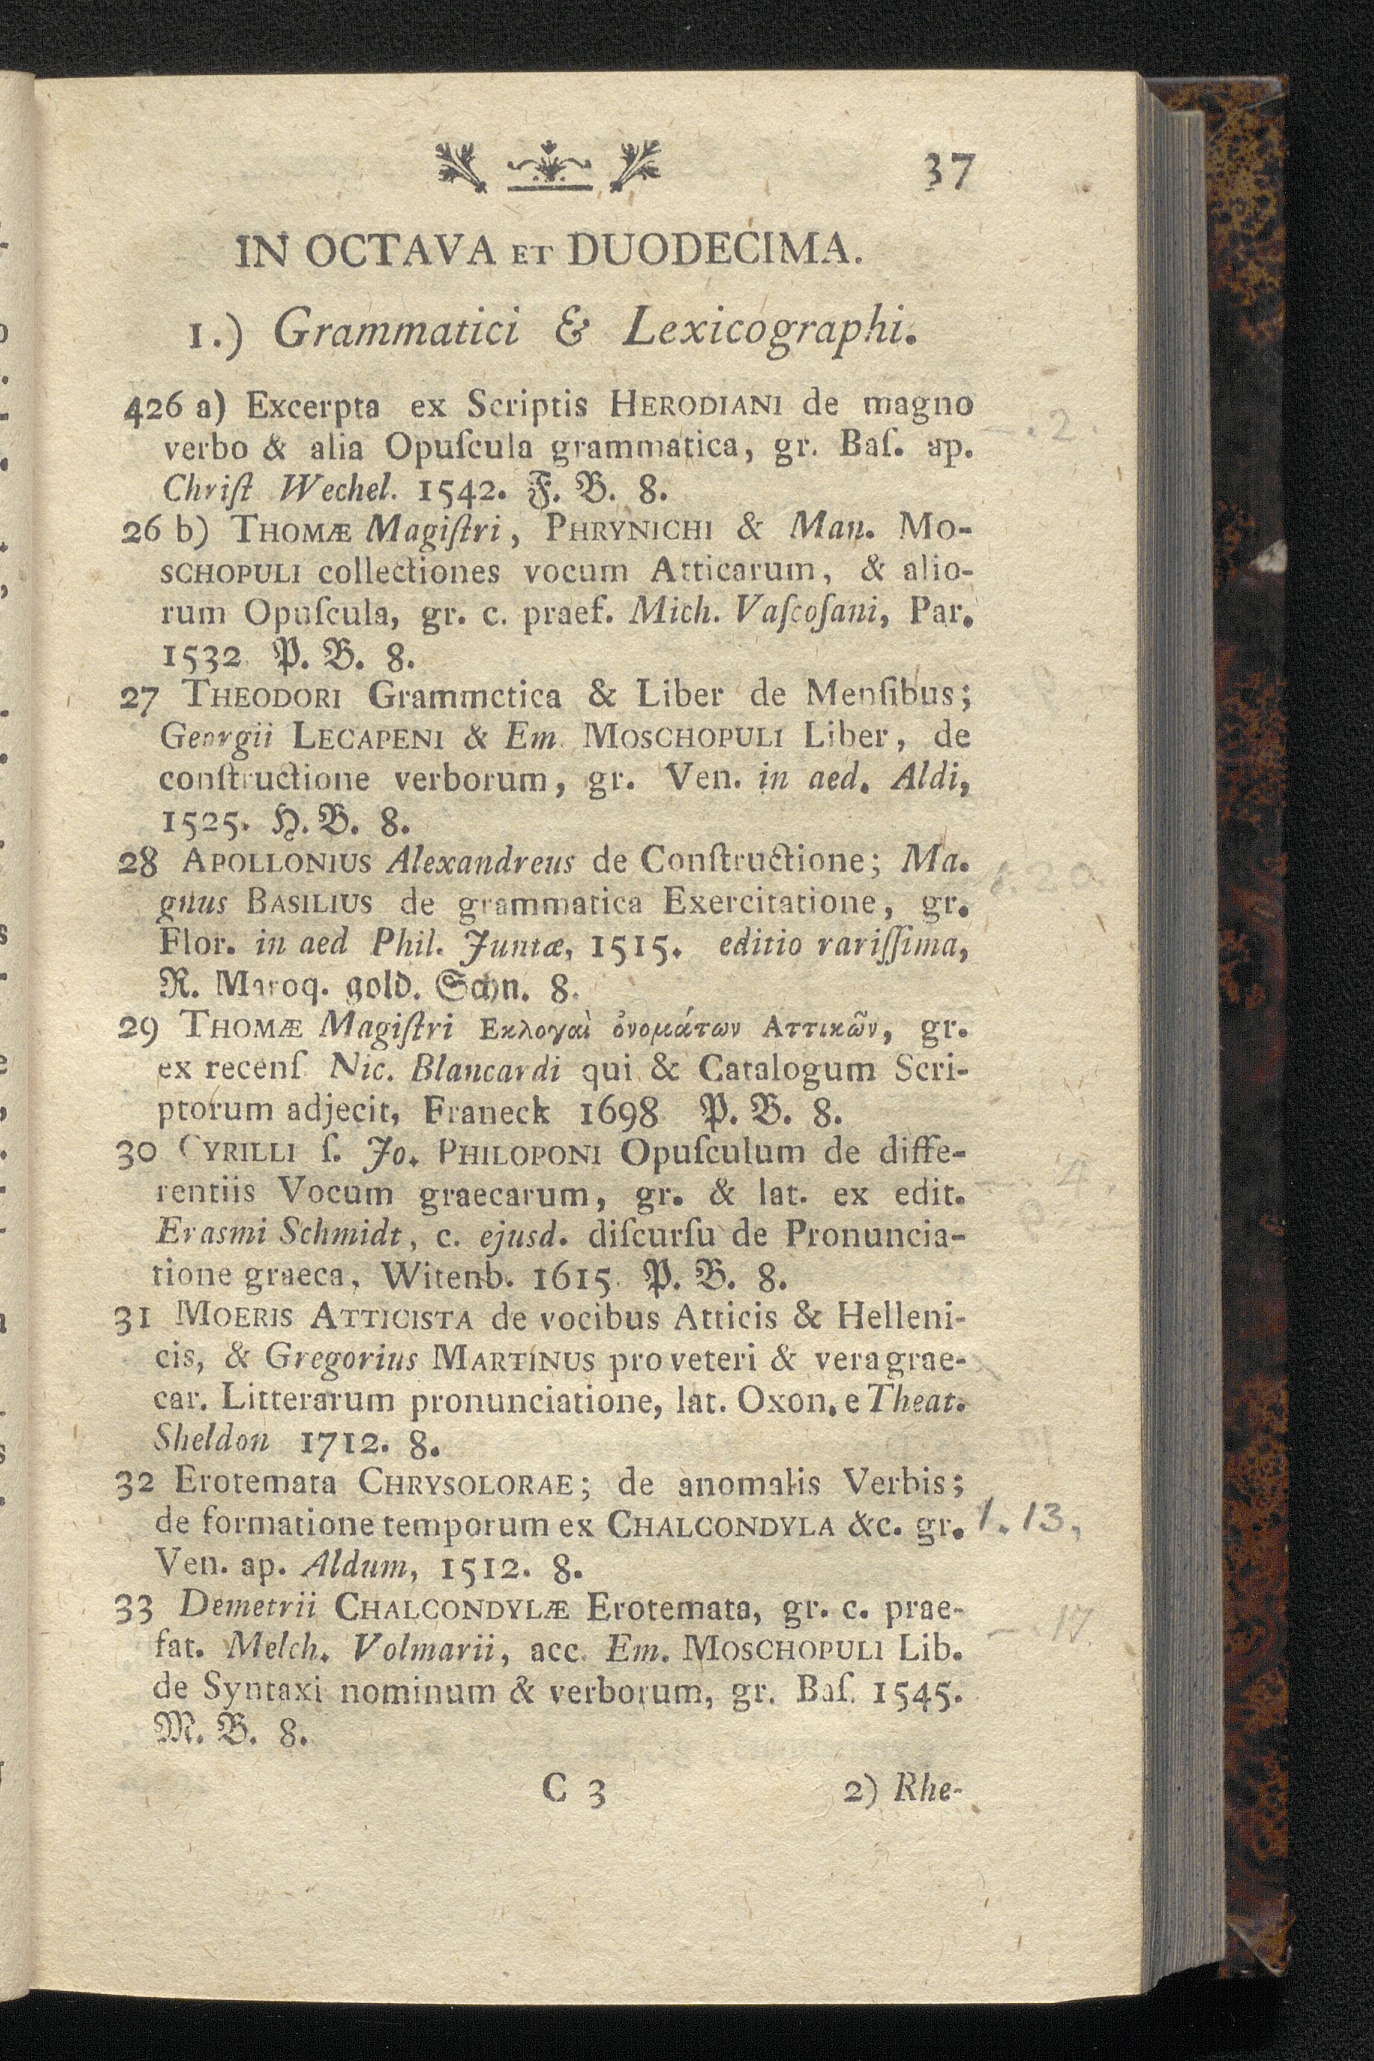 37
IN OCTAVA ET DUODECIMA.
1.) Grammatici & Lexicographi.
426 a) Excerpta ex Scriptis HERODIANI de magno
verbo & alia Opuſcula grammatica, gr. Baſ. ap.
Chriſt Wechel. 1542. F. B. 8.
26 b) THOMÆ Magiſtri, PHRYNICHI & Man. MO-
SCHOPULI collectiones vocum Atticarum, & alio-
rum Opuſcula, gr. c. praef. Mich. Vaſcoſani, Par.
1532 P. B. 8.
27 THEODORI Grammctica & Liber de Menſibus;
Georgii LECAPENI & Em. MOSCHOPULI Liber, de
conſtructione verborum, gr. Ven. in aed. Aldi,
1525. H. B. 8.
28 APOLLONIUS Alexandreus de Conſtructione; Ma.
gnus BASILIUS de grammatica Exercitatione, gr.
Flor. in aed Phil. Juntæ, 1515. editio rariſſima,
R. Maroq. gold. Schn. 8.
29 THOMÆ Magiſtri Εκλογαὶ ὀνομάτων Αττικῶν, gr.
ex recenſ Nic. Blancardi qui & Catalogum Scri-
ptorum adjecit, Franeck 1698 P. B. 8.
30 CYRILLI ſ. Jo. PHILOPONI Opuſculum de diffe-
rentiis Vocum graecarum, gr. & lat. ex edit.
Erasmi Schmidt, c. ejusd. diſcurſu de Pronuncia-
tione graeca, Witenb. 1615. P. B. 8.
31 MOERIS ATTICISTA de vocibus Atticis & Helleni-
cis, & Gregorius MARTINUS pro veteri & vera grae-
car. Litterarum pronunciatione, lat. Oxon. e Theat.
Sheldon 1712. 8.
32 Erotemata CHRYSOLORAE; de anomalis Verbis;
de formatione temporum ex CHALCONDYLA &c. gr.
Ven. ap. Aldum, 1512. 8.
33 Demetrii CHALCONDYLÆ Erotemata, gr. c. prae-
fat. Melch. Volmarii, acc. Em. MOSCHOPULI Lib.
de Syntaxi nominum & verborum, gr. Baſ. 1545.
M. B. 8.
C 3 2) Rhe-
—. 2.
1. 20.
—. 4.
1. 13,
—. 17.